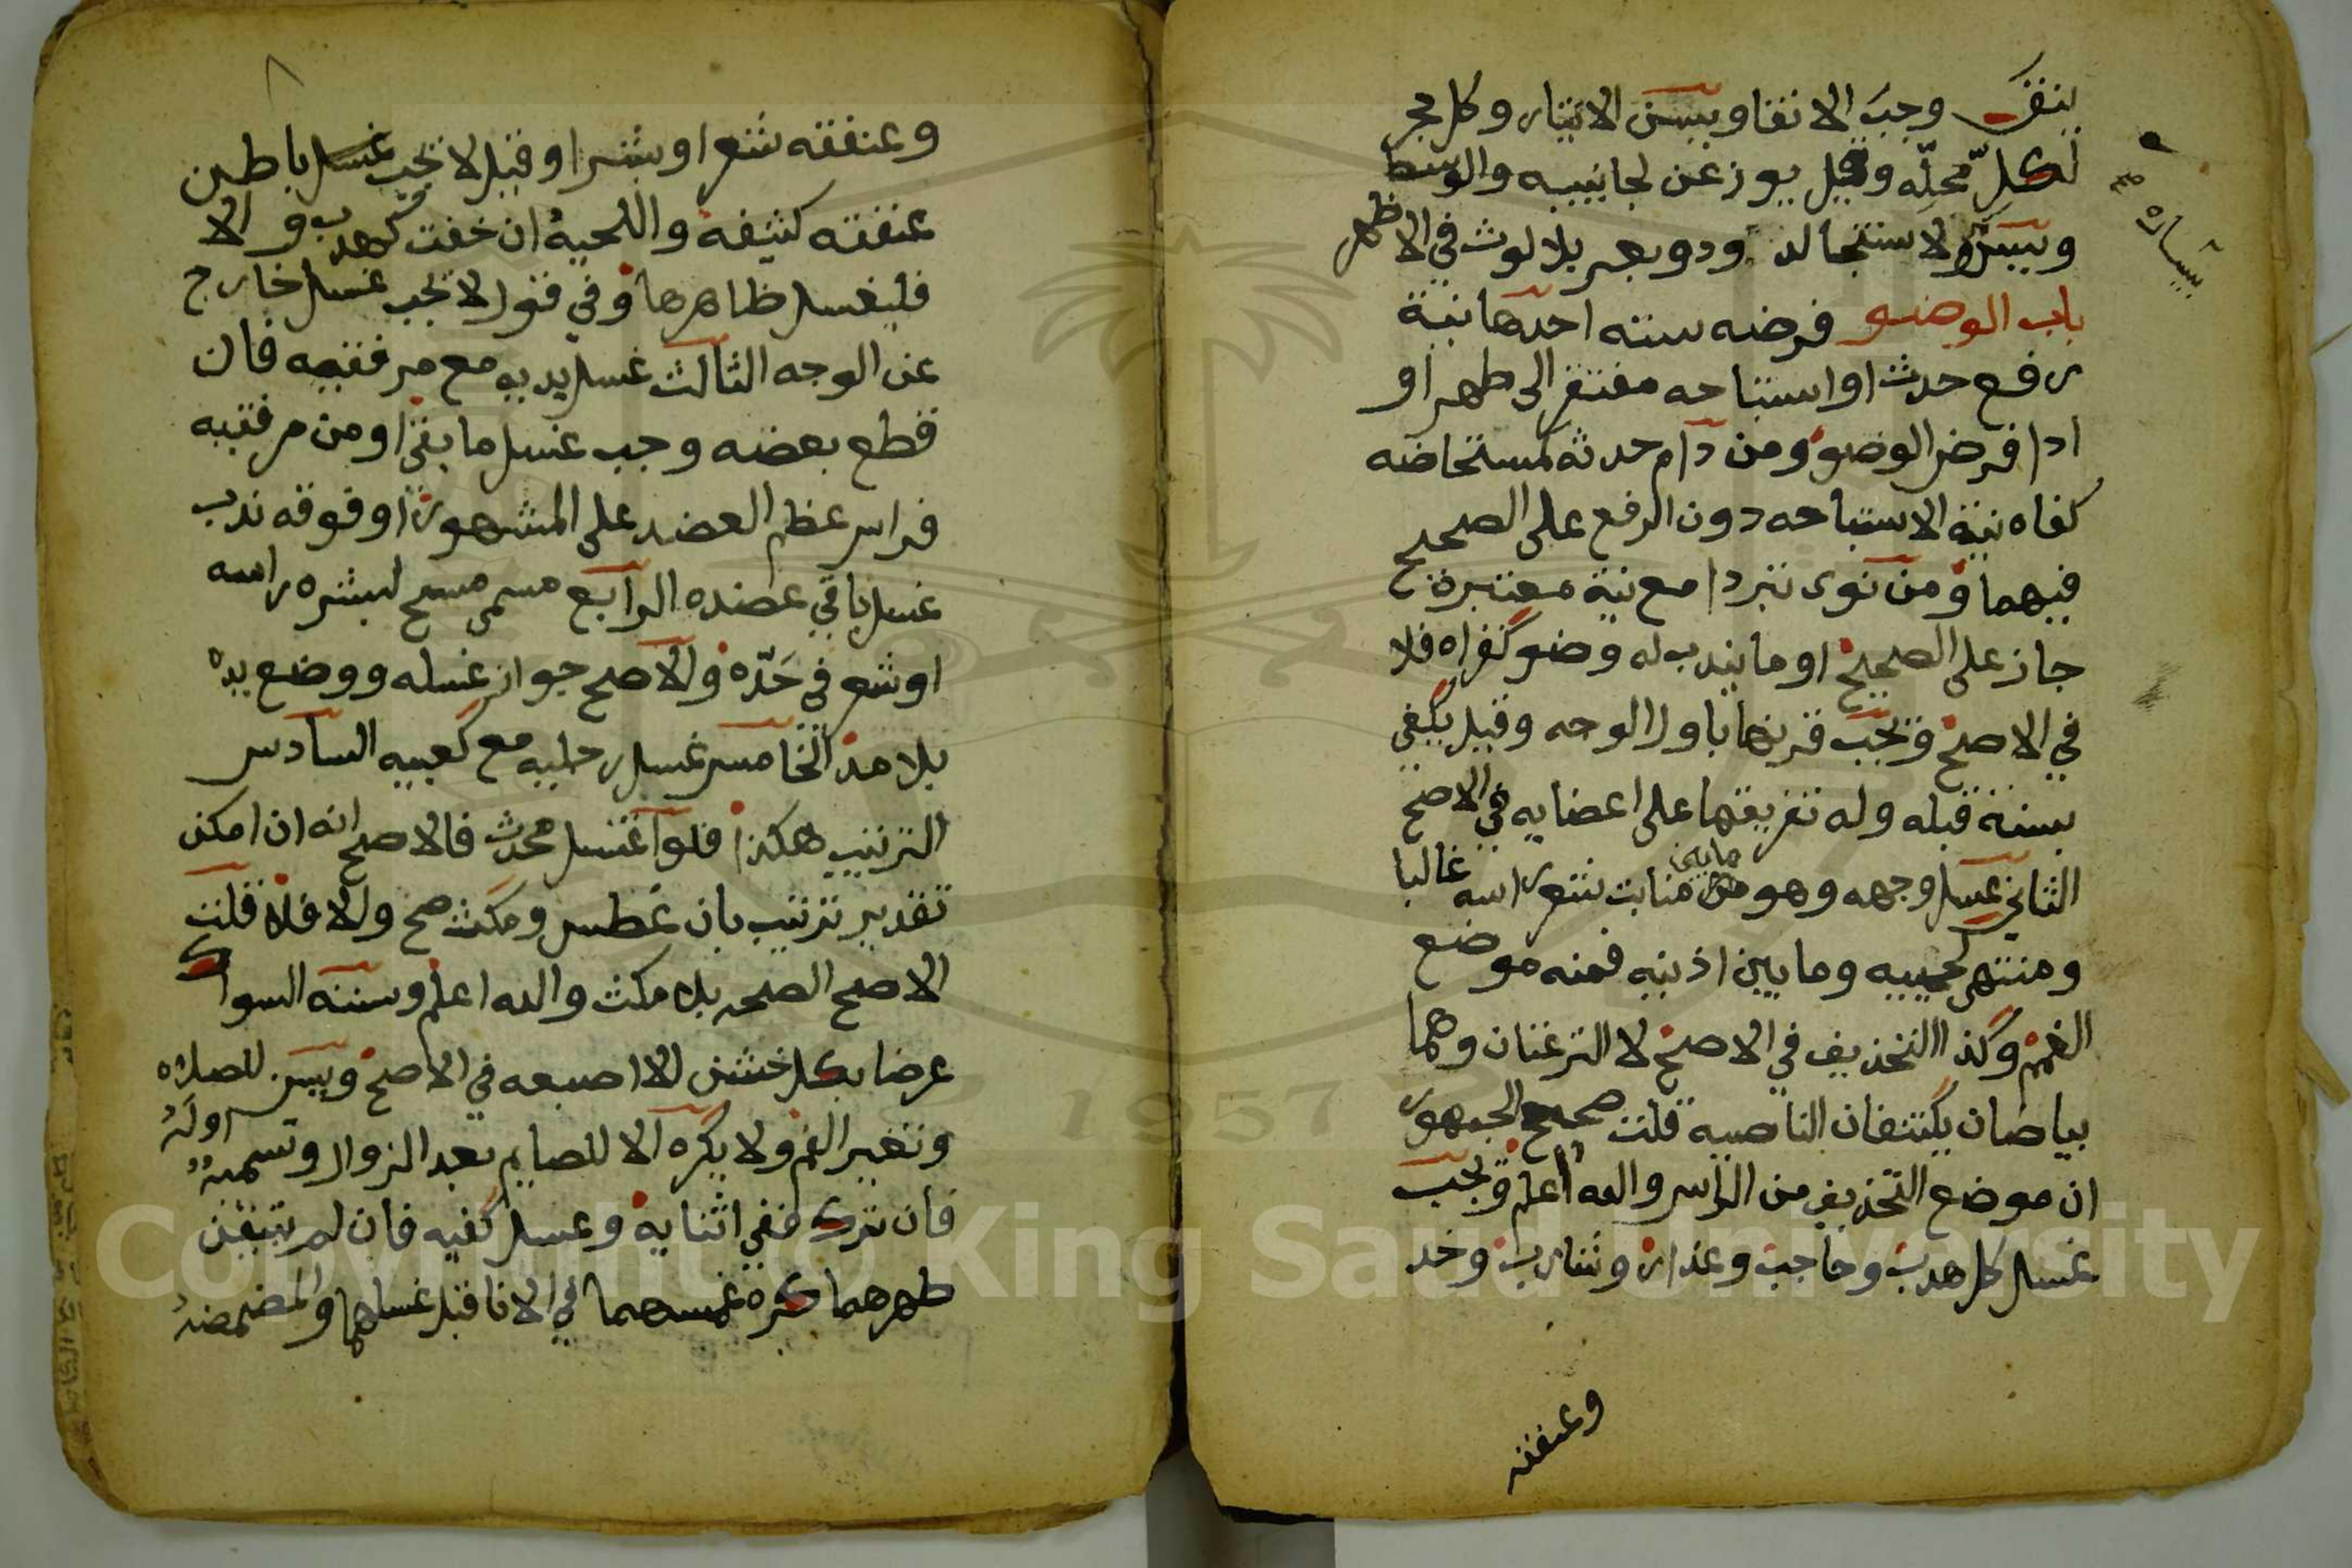 ينق وجب الانقا ويسن الايتار وكل حجر
لكل محله وقيل يوزعن لجانبيه والوسط
ويسن الاستنجا ودود وبعر بلا لوث في الاظهر
بيساره
باب الوضو فرضه سته احدها نية
رفع حدث او استباحه مفتقر الى طهر او
ادا فرض الوضو ومن دام حدثه كمستحاضه
كفاه نية الاستباحه دون الرفع على الصحيح
فيهما ومن نوى تبردا مع نية معتبرة
جاز على الصحيح او ما يندب له وضو كقراه فلا
في الاصح ويجب قرنها باول الوجه وقيل يكفي
بسنة قبله وله تفريقها على اعضايه في الاصح
الثاني غسل وجهه وهو مابين منابت شعر راسه غالبا
ومنتهى لحييه وما بين اذنيه فمنه موضع
الغمم وكذا التحذيف في الاصح لا النزعتان وهما
بياضان يكتنفان الناصيه قلت صحح الجمهور
ان موضع التحذيف من الراس والله اعلم ويجب
غسل كل هدب وحاجب وعذار وشارب وخد
وعنفقته
وعنفقه شعرا وبشرا وقيل لا يجب غسل باطن
عنفقته كثيفة واللحية ان خفت كهدب والا
فليغسل ظاهرها وفي قول لا يجب غسل خارج
عن الوجه الثالث غسل يديه مع مرفقيه فان
قطع بعضه وجب غسل ما بقي او من مرفقيه
فراس عظم العضد على المشهور او فوقه ندب
غسل باقي عضده الرابع مسمى مسح لبشره راسه
او شعر في حَدّه والاصح جواز غسله ووضع يده
بلا مد الخامس غسل رجليه مع كعبيه السادس
الترتيب هكذا فلو اغتسل محدث فالاصح انه ان امكن
تقدير ترتيب بان غطس ومكث صح والا فلا قلت
الاصح الصحه بلا مكث والله اعلم وسننه السواك
عرضا بكل خشن لا اصبعه في الاصح ويسن للصلاه
وتغير الفم ولا يكره الا للصايم بعد الزوال وتسمية اوله
فان ترك ففي اثنايه وغسل كفيه فان لم يتيقن
طهرهما كره غمسهما في الانا قبل غسلهما والمضمضه
1957
Copyright © King Saud University